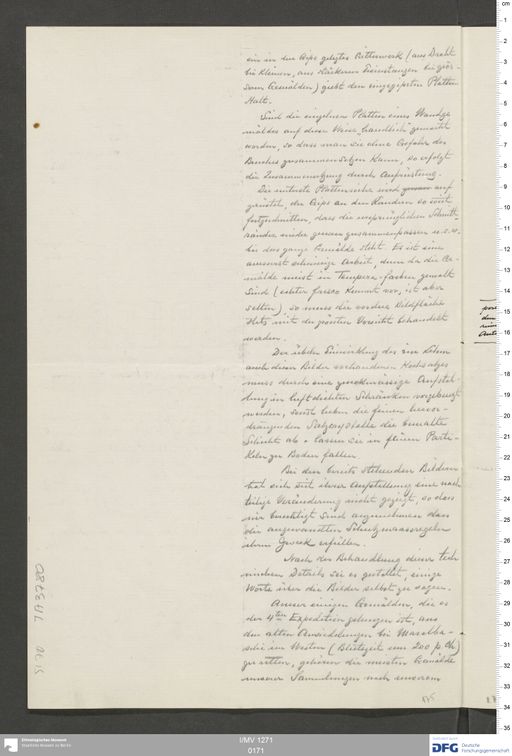 ein in den Gips gelegtes Gitterwerk (aus Draht
bei kleinen, aus stärkeren Eisenstangen bei grös-
seren Gemälden) giebt den eingegipsten Platten
Halt.
Sind die einzelnen Platten eines Wandge
mäldes auf diese Weise handlich gemacht
worden, so dass man sie ohne Gefahr des
Bruches zusammensetzen kann, so erfolgt
die Zusammensetzung durch Aufrüstung.
Die unterste Plattenreihe wird auf
gerüstet, der Gips an den Rändern so weit
fortgeschnitten, dass die ursprünglichen Schnitt-
ränder wieder genau zusammenpassen u.s.w.
bis das ganze Gemälde steht. Es ist eine
äusserst schwierige Arbeit, denn da die Ge-
mälde meist in Tempera-farben gemalt
sind (echter fresco kommt vor, ist aber
selten), so muss die vordere Bildfläche
stets mit der grössten Vorsicht behandelt
werden.
Der üblen Einwirkung des im Lehm
auch dieser Bilder vorhandenen Kochsalzes
muss durch eine zweckmässige Aufstel-
lung in luftdichten Schränken vorgebeugt
werden, sonst heben die feinen hervor-
drängenden Salzcrystalle die bemalte
Schicht ab & lassen sie in feinen Parti-
keln zu Boden fallen.
Bei den bereits stehenden Bildern
hat sich seit ihrer Aufstellung eine nach
teilige Veränderung nicht gezeigt, so dass
wir berechtigt sind anzunehmen dass
die angewandten Schutzmaassregeln
ihren Zweck erfüllen.
Nach der Behandlung dieser tech
nischen Details sei es gestattet, einige
Worte über die Bilder selbst zu sagen.
Ausser einigen Gemälden, die es
der 4ten Expedition gelungen ist, aus
den alten Ansiedelungen bei Maralba-
schi im Westen (Blütezeit um 200 p. Ch)
zu retten, gehören die meisten Gemälde
unserer Sammlungen nach unserem
175
Ethnologisches Museum
Staatliche Museen zu Berlin
I/MV 1271
0171
DFG Deutsche
Forschungsgemeinschaft
cm
1
2
3
4
5
6
7
8
9
10
11
12
13
14
15
16
17
18
19
20
21
22
23
24
25
26
27
28
29
30
31
32
33
34
35